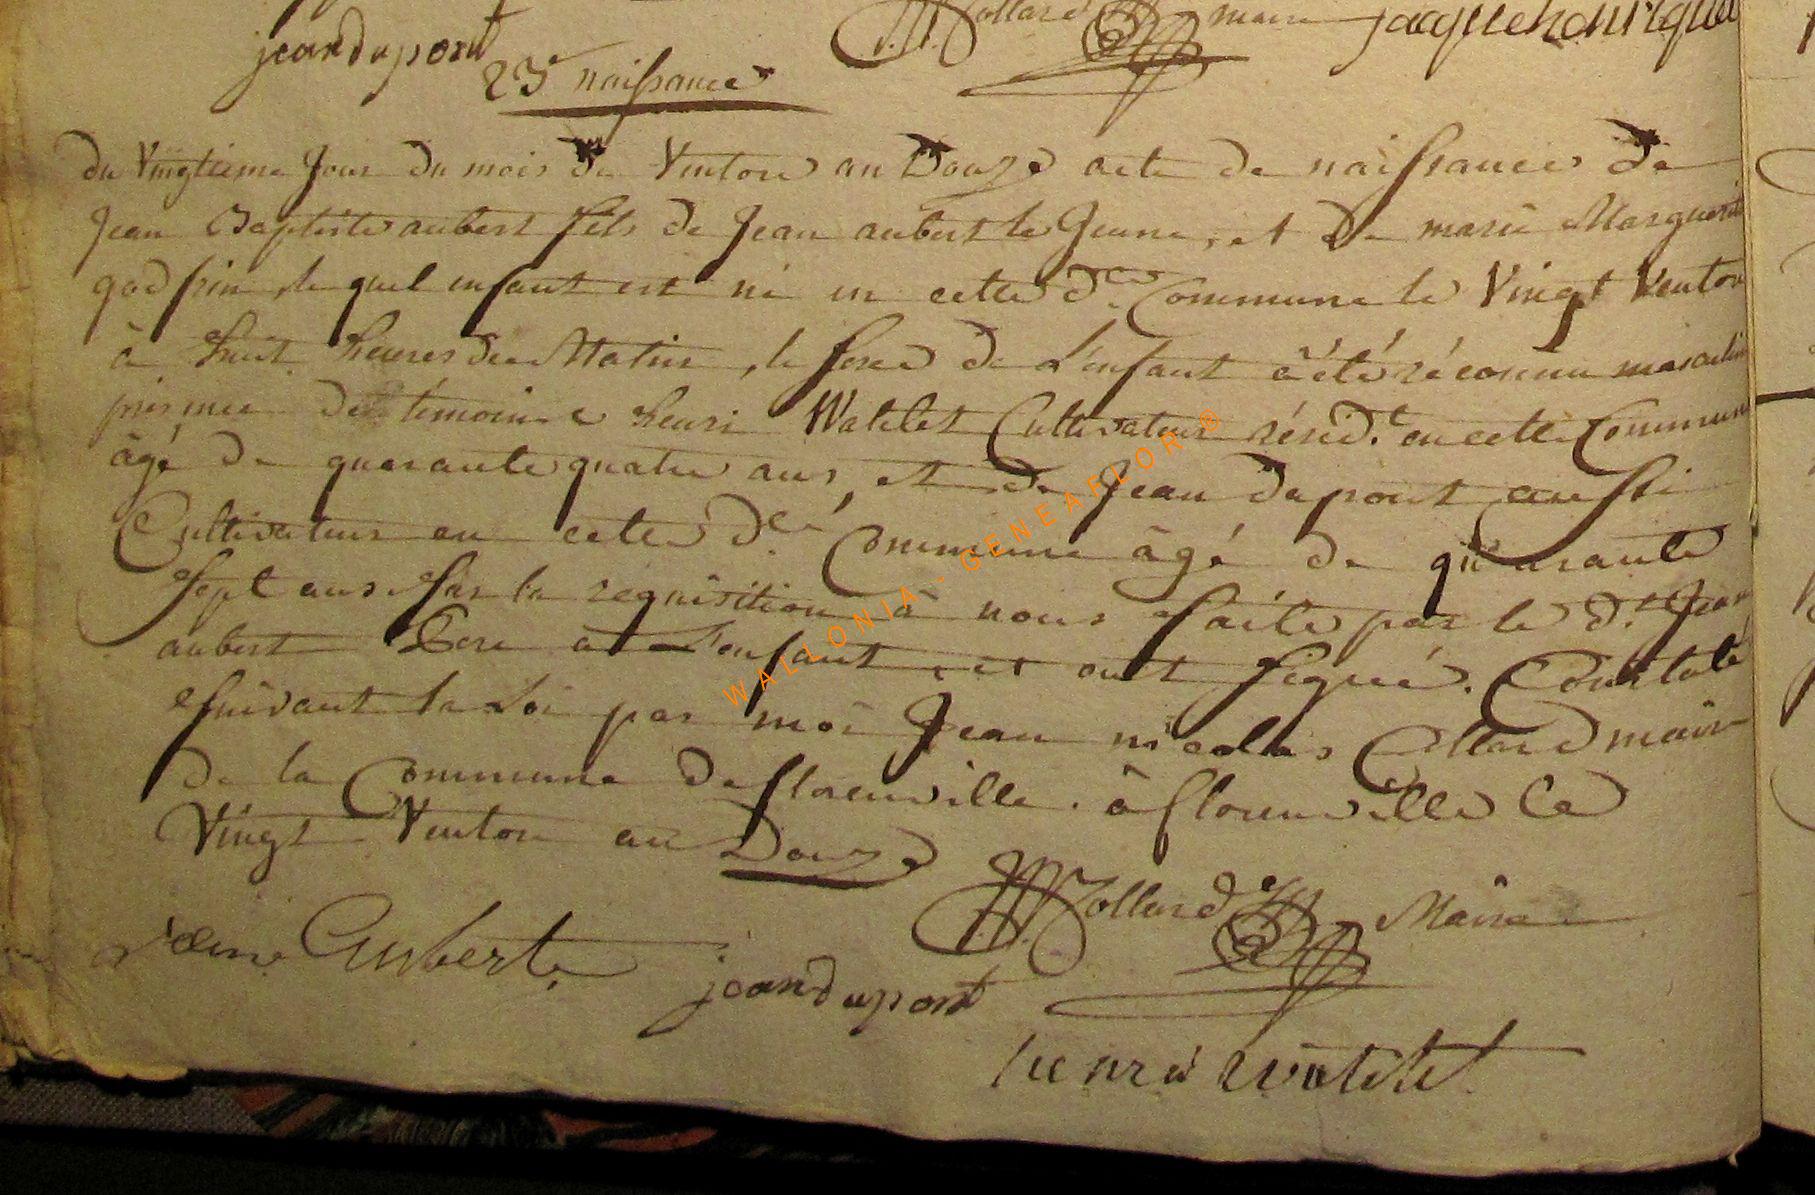 JN Collard maire jacque henriquet
jean dupont
23e naissance
du Vingtieme Jour du mois de Ventose an Douze acte de naissance de
Jean Baptiste aubert fils de Jean aubert le Jeune, et de marie Marguerite
godfrin, le quel enfant est né en cette de. Commune le Vingt Ventose
à huit heures du Matin, le sexe de L'enfant à été réconnu masculin
premier témoin henri Watelet Cultivateur résidt. en cette Commune
âgé de quarante quatre ans, et de Jean dupont aussi
Cultivateur en cette de. Commune âgé de quarante
sept ans. Sur la réquisition à nous faite par le dt. Jean
aubert Pere de L'enfant, et ont signé. Constaté
suivant la Loi par moi Jean nicolas Collard maire
de la Commune de florenville. à florenville Le
Vingt Ventose an Douze
JN Collard Maire
Aubert
jean dupont
henri watelet
WALLONIA - GENEAFLOR ®